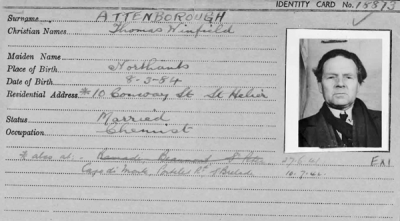 IDENTITY CARD No. 18873
Surname ATTENBOROUGH
Christian Names Thomas Winfield
Maiden Name
Place of Birth Northants
Date of Birth 8-3-84
Residential Address #10 Conway St St Helier
Status Married
Occupation Chemist
# also at Beaumont EA1
Capo di Monte, of Brelade